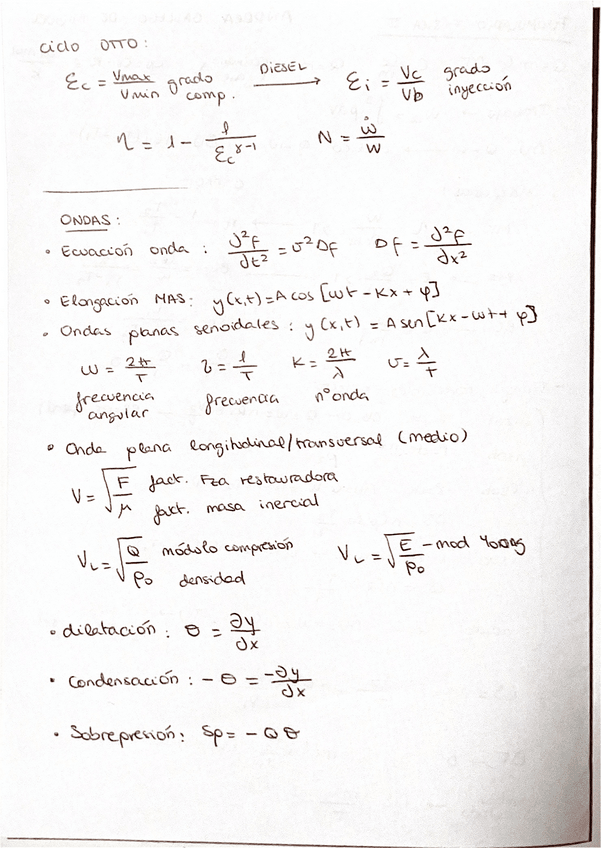 Ciclo OTTO:
Ec = Vmax/Vmin grado comp. DIESEL → Ei = Vc/Vb grado inyección
η = 1 - 1/Ec^γ-1 N = ẇ/w
ONDAS:
• Ecuación onda : ∂²f/∂t² = v² Δf Δf = ∂²f/∂x²
• Elongación MAS: y(x,t)=A cos [ωt - Kx + φ]
• Ondas planas senoidales : y(x,t) = A sen[Kx - ωt + φ]
ω = 2π/T ν = 1/T K = 2π/λ v = λ/T
frecuencia angular frecuencia nº onda
• Onda plana longitudinal/transversal (medio)
V = √F/μ fact. Fza restauradora
fact. masa inercial
VL = √Q/ρ0 módulo compresión densidad VL = √E/ρ0 - mod young
• dilatación : θ = ∂y/∂x
• Condensación : - θ = -∂y/∂x
• Sobrepresión: Sp = - Q θ